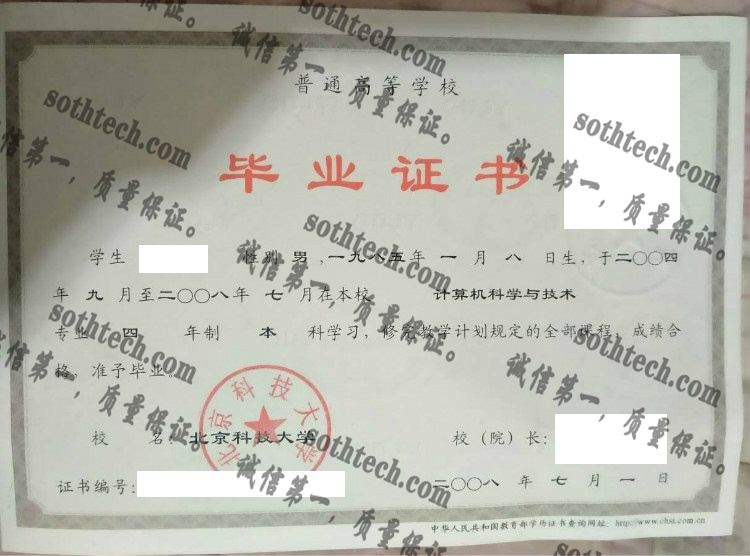 普通高等学校
毕业证书
学生 性别 男 ,一九八五年 一 月 八 日生，于二〇〇四
年 九 月至二〇〇八年 七 月在本校 计算机科学与技术
专业 四 年制 本 科学习，修完教学计划规定的全部课程，成绩合
格，准予毕业。
北京科技大学
校 名：北京科技大学
校（院）长：
证书编号：
二〇〇八 年 七 月 一 日
中华人民共和国教育部学历证书查询网址：http://www.chsi.com.cn
sothtech.com
诚信第一，质量保证。
sothtech.com
诚信第一，质量保证。
sothtech.com
诚信第一，质量保证。
sothtech.com
诚信第一，质量保证。
sothtech.com
诚信第一，质量保证。
sothtech.com
诚信第一，质量保证。
sothtech.com
诚信第一，质量保证。
sothtech.com